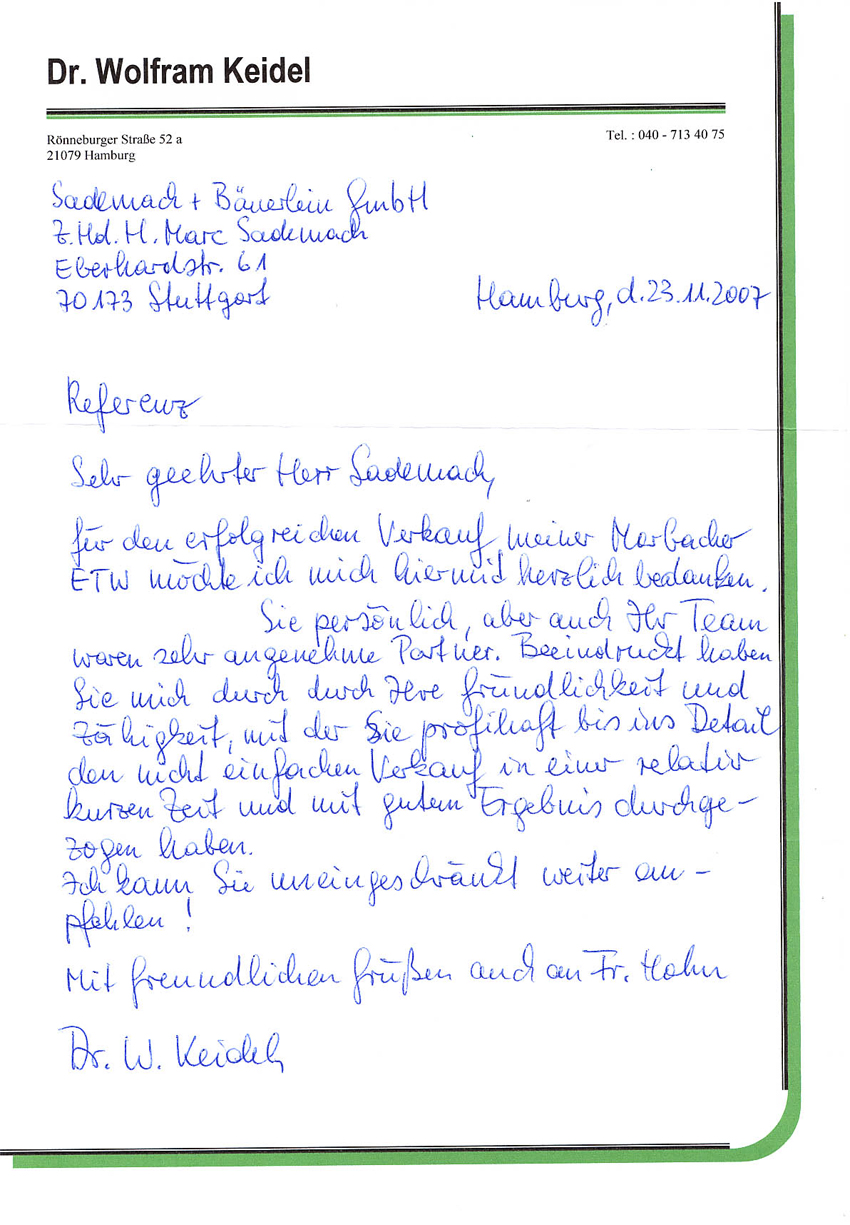 Dr. Wolfram Keidel
Rönneburger Straße 52 a
21079 Hamburg
Tel. : 040 - 713 40 75
Sademach + Bäuerlein GmbH
Z.Hd. H. Marc Sademach
Eberhardstr. 61
70173 Stuttgart
Hamburg, d. 23.11.2007
Referenz
Sehr geehrter Herr Sademach,
für den erfolgreichen Verkauf meiner Marbacher
ETW möchte ich mich hiermit herzlich bedanken.
Sie persönlich, aber auch Ihr Team
waren sehr angenehme Partner. Beeindruckt haben
Sie mich durch durch Ihre Gründlichkeit und
Zähigkeit, mit der Sie profihaft bis ins Detail
den nicht einfachen Verkauf in einer relativ
kurzen Zeit und mit gutem Ergebnis durchge-
zogen haben.
Ich kann Sie uneingeschränkt weiter em-
pfehlen !
Mit freundlichen Grüßen auch an Fr. Hahn
Dr. W. Keidel